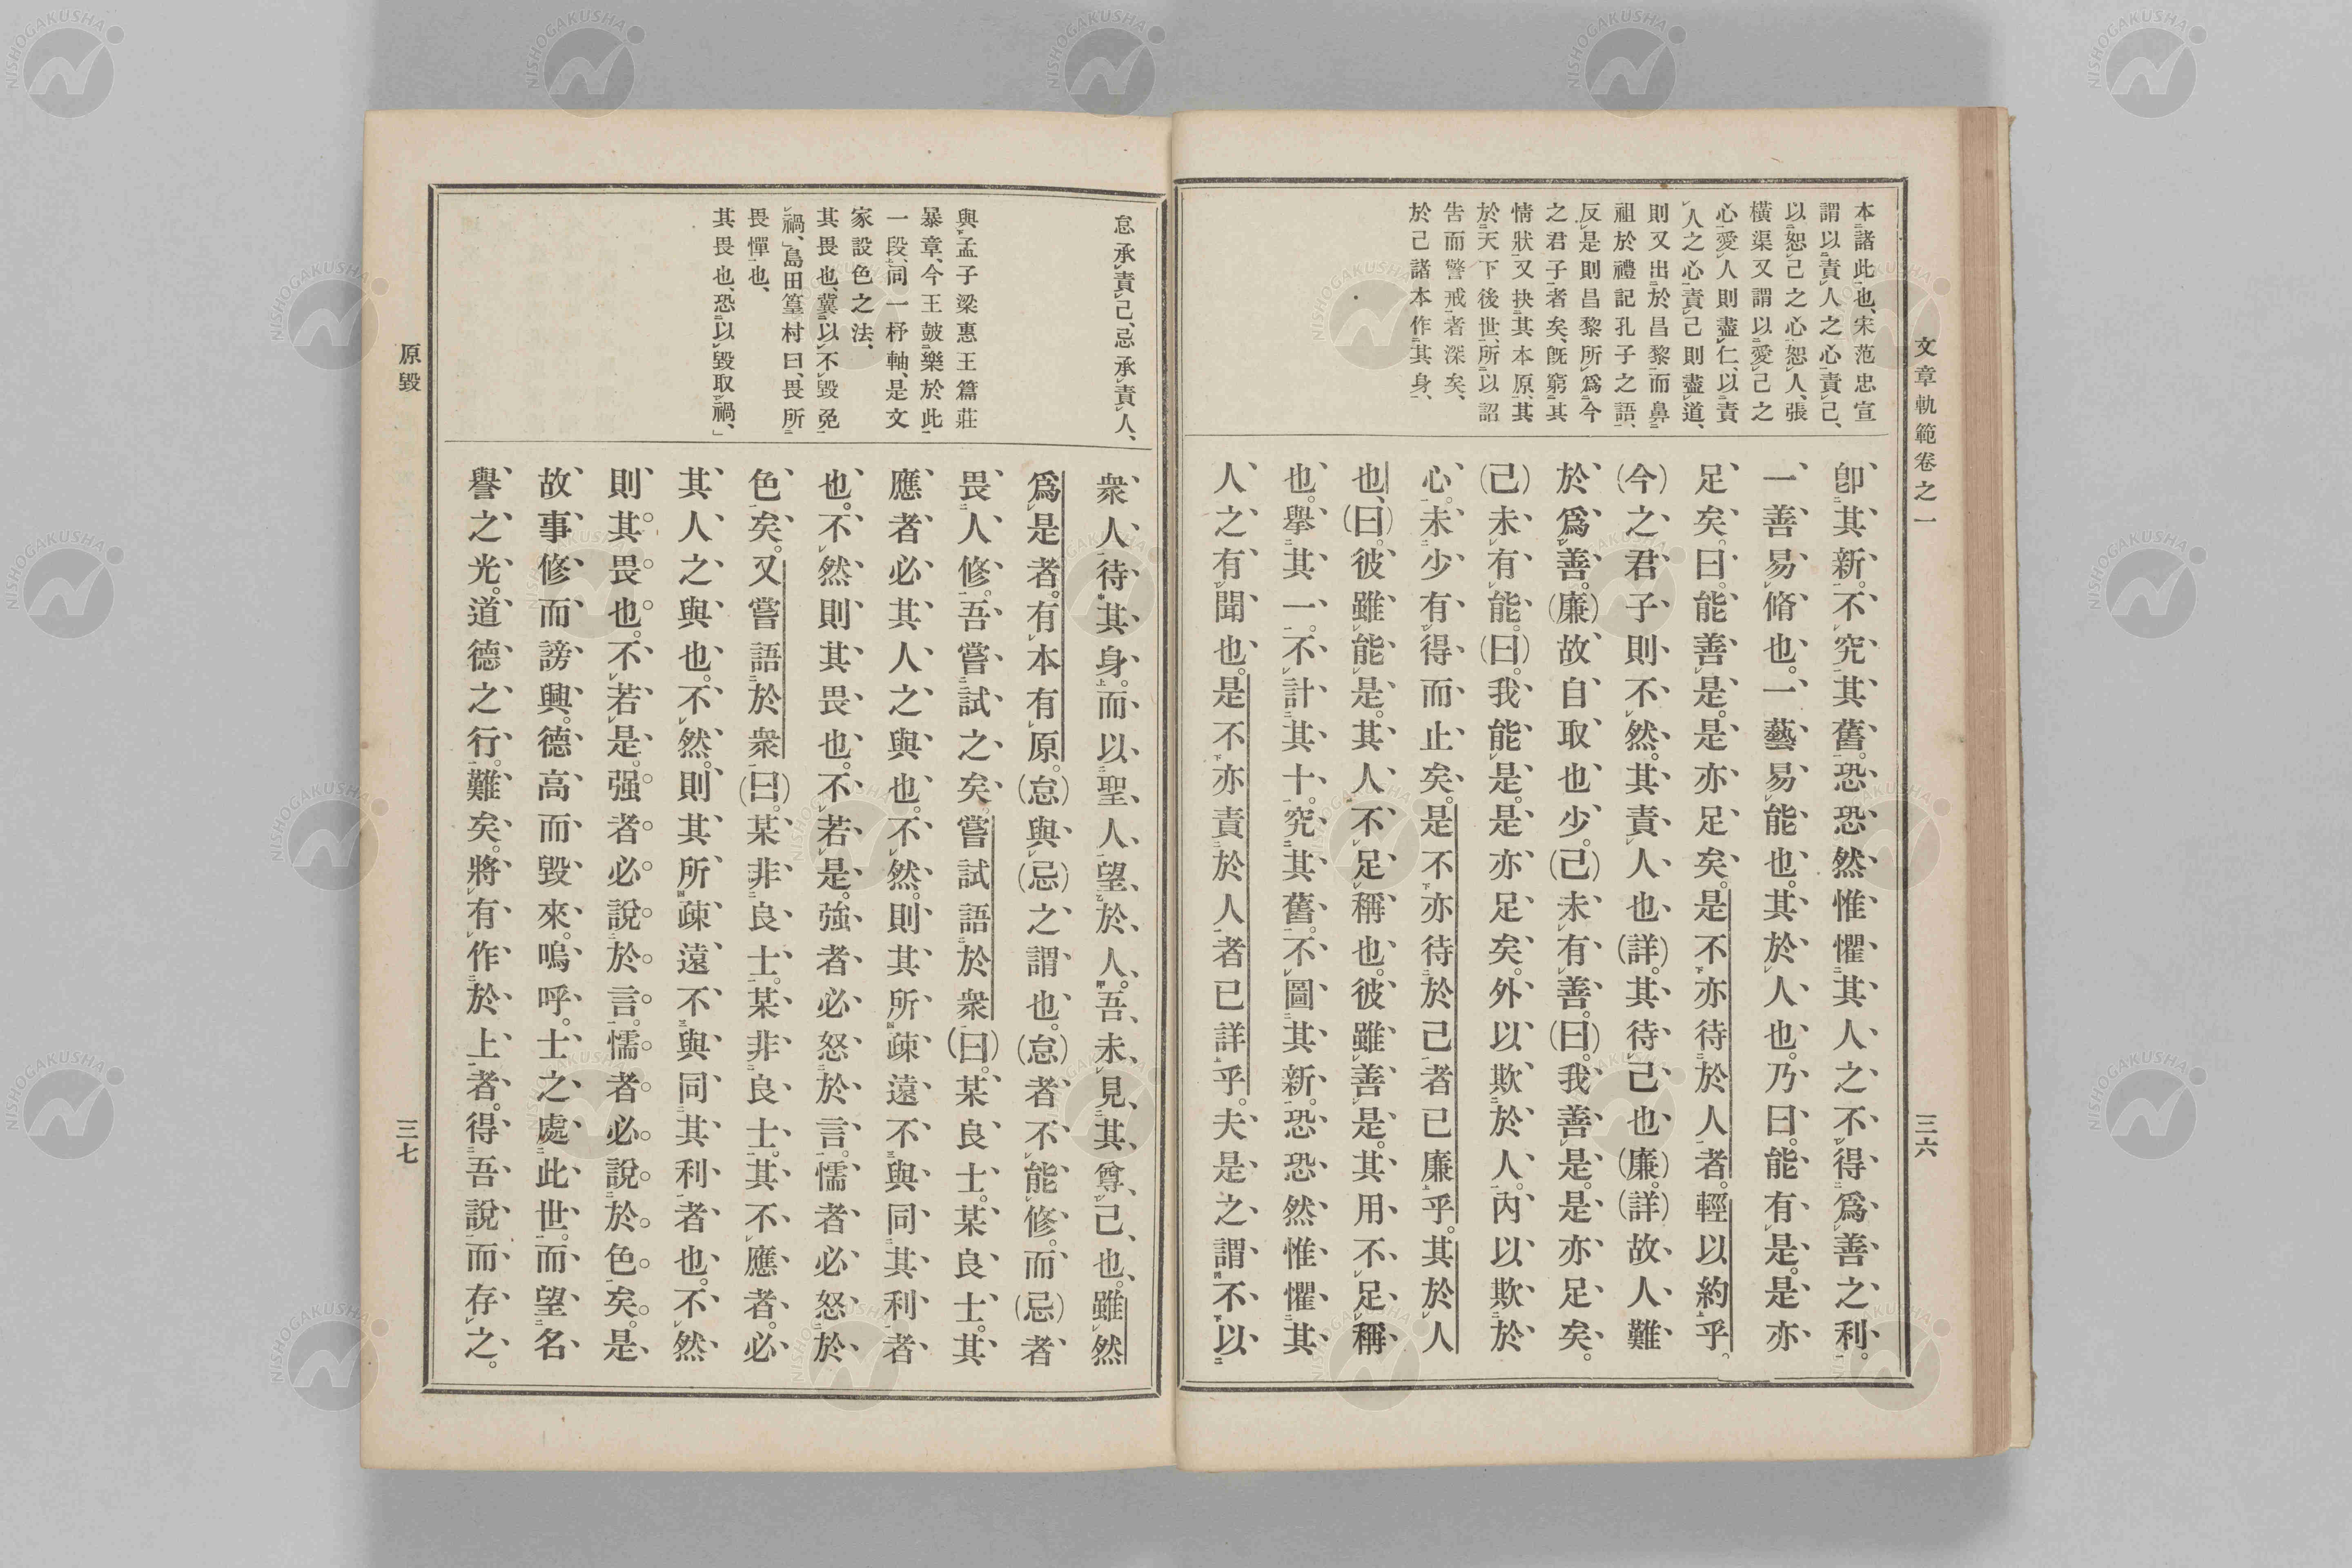 文章軌範卷之一
三六
本諸此也、宋范忠宣
謂以責人之心責己、
以恕己之心恕人、張
橫渠又謂以愛己之
心愛人則盡仁、以責
人之心責己則盡道、
則又出於昌黎而鼻
祖於禮記孔子之語、
反是則昌黎所爲今
之君子者矣、旣窮其
情狀又抉其本原、其
於天下後世、所以詔
吿而警戒者深矣、
於己諸本作其身、
卽其新。不究其舊。恐恐然惟懼其人之不得爲善之利。
一善易脩也。一藝易能也。其於人也。乃曰。能有是。是亦
足矣。曰。能善是。是亦足矣。是不亦待於人者。輕以約乎。
(今)之君子則不然。其責人也(詳)。其待己也(廉)。(詳)故人難
於爲善。(廉)故自取也少。(己)未有善。(曰)。我善是。是亦足矣。
(己)未有能。(曰)。我能是。是亦足矣。外以欺於人。內以欺於
心。未少有得而止矣。是不亦待於己者已廉乎。其於人
也、(曰)。彼雖能是。其人不足稱也。彼雖善是。其用不足稱
也。舉其一。不計其十。究其舊。不圖其新。恐恐然惟懼其
人之有聞也。是不亦責於人者已詳乎。夫是之謂不以
怠承責己、忌承責人、
與孟子梁惠王篇莊
暴章、今王皷樂於此
一段、同一杼軸、是文
家設色之法、
其畏也、冀以不毀免
禍、」島田篁村曰、畏所
畏憚也、
其畏也、恐以毀取禍、」
衆人待其身。而以聖人望於人。吾未見其尊己也。雖然
爲是者。有本有原。(怠)與(忌)之謂也。(怠)者不能修。而(忌)者
畏人修。吾嘗試之矣。嘗試語於衆(曰)。某良士。某良士。其
應者必其人之與也。不然。則其所疎遠不與同其利者
也。不然則其畏也。不若是。強者必怒於言。懦者必怒於
色矣。又嘗語於衆(曰)。某非良士。某非良士。其不應者。必
其人之與也。不然。則其所疎遠不與同其利者也。不然
則其畏也。不若是。强者必說於言。懦者必說於色矣。是
故事修而謗興。德高而毀來。嗚呼。士之處此世。而望名
譽之光。道德之行。難矣。將有作於上者。得吾說而存之。
原毀
三七